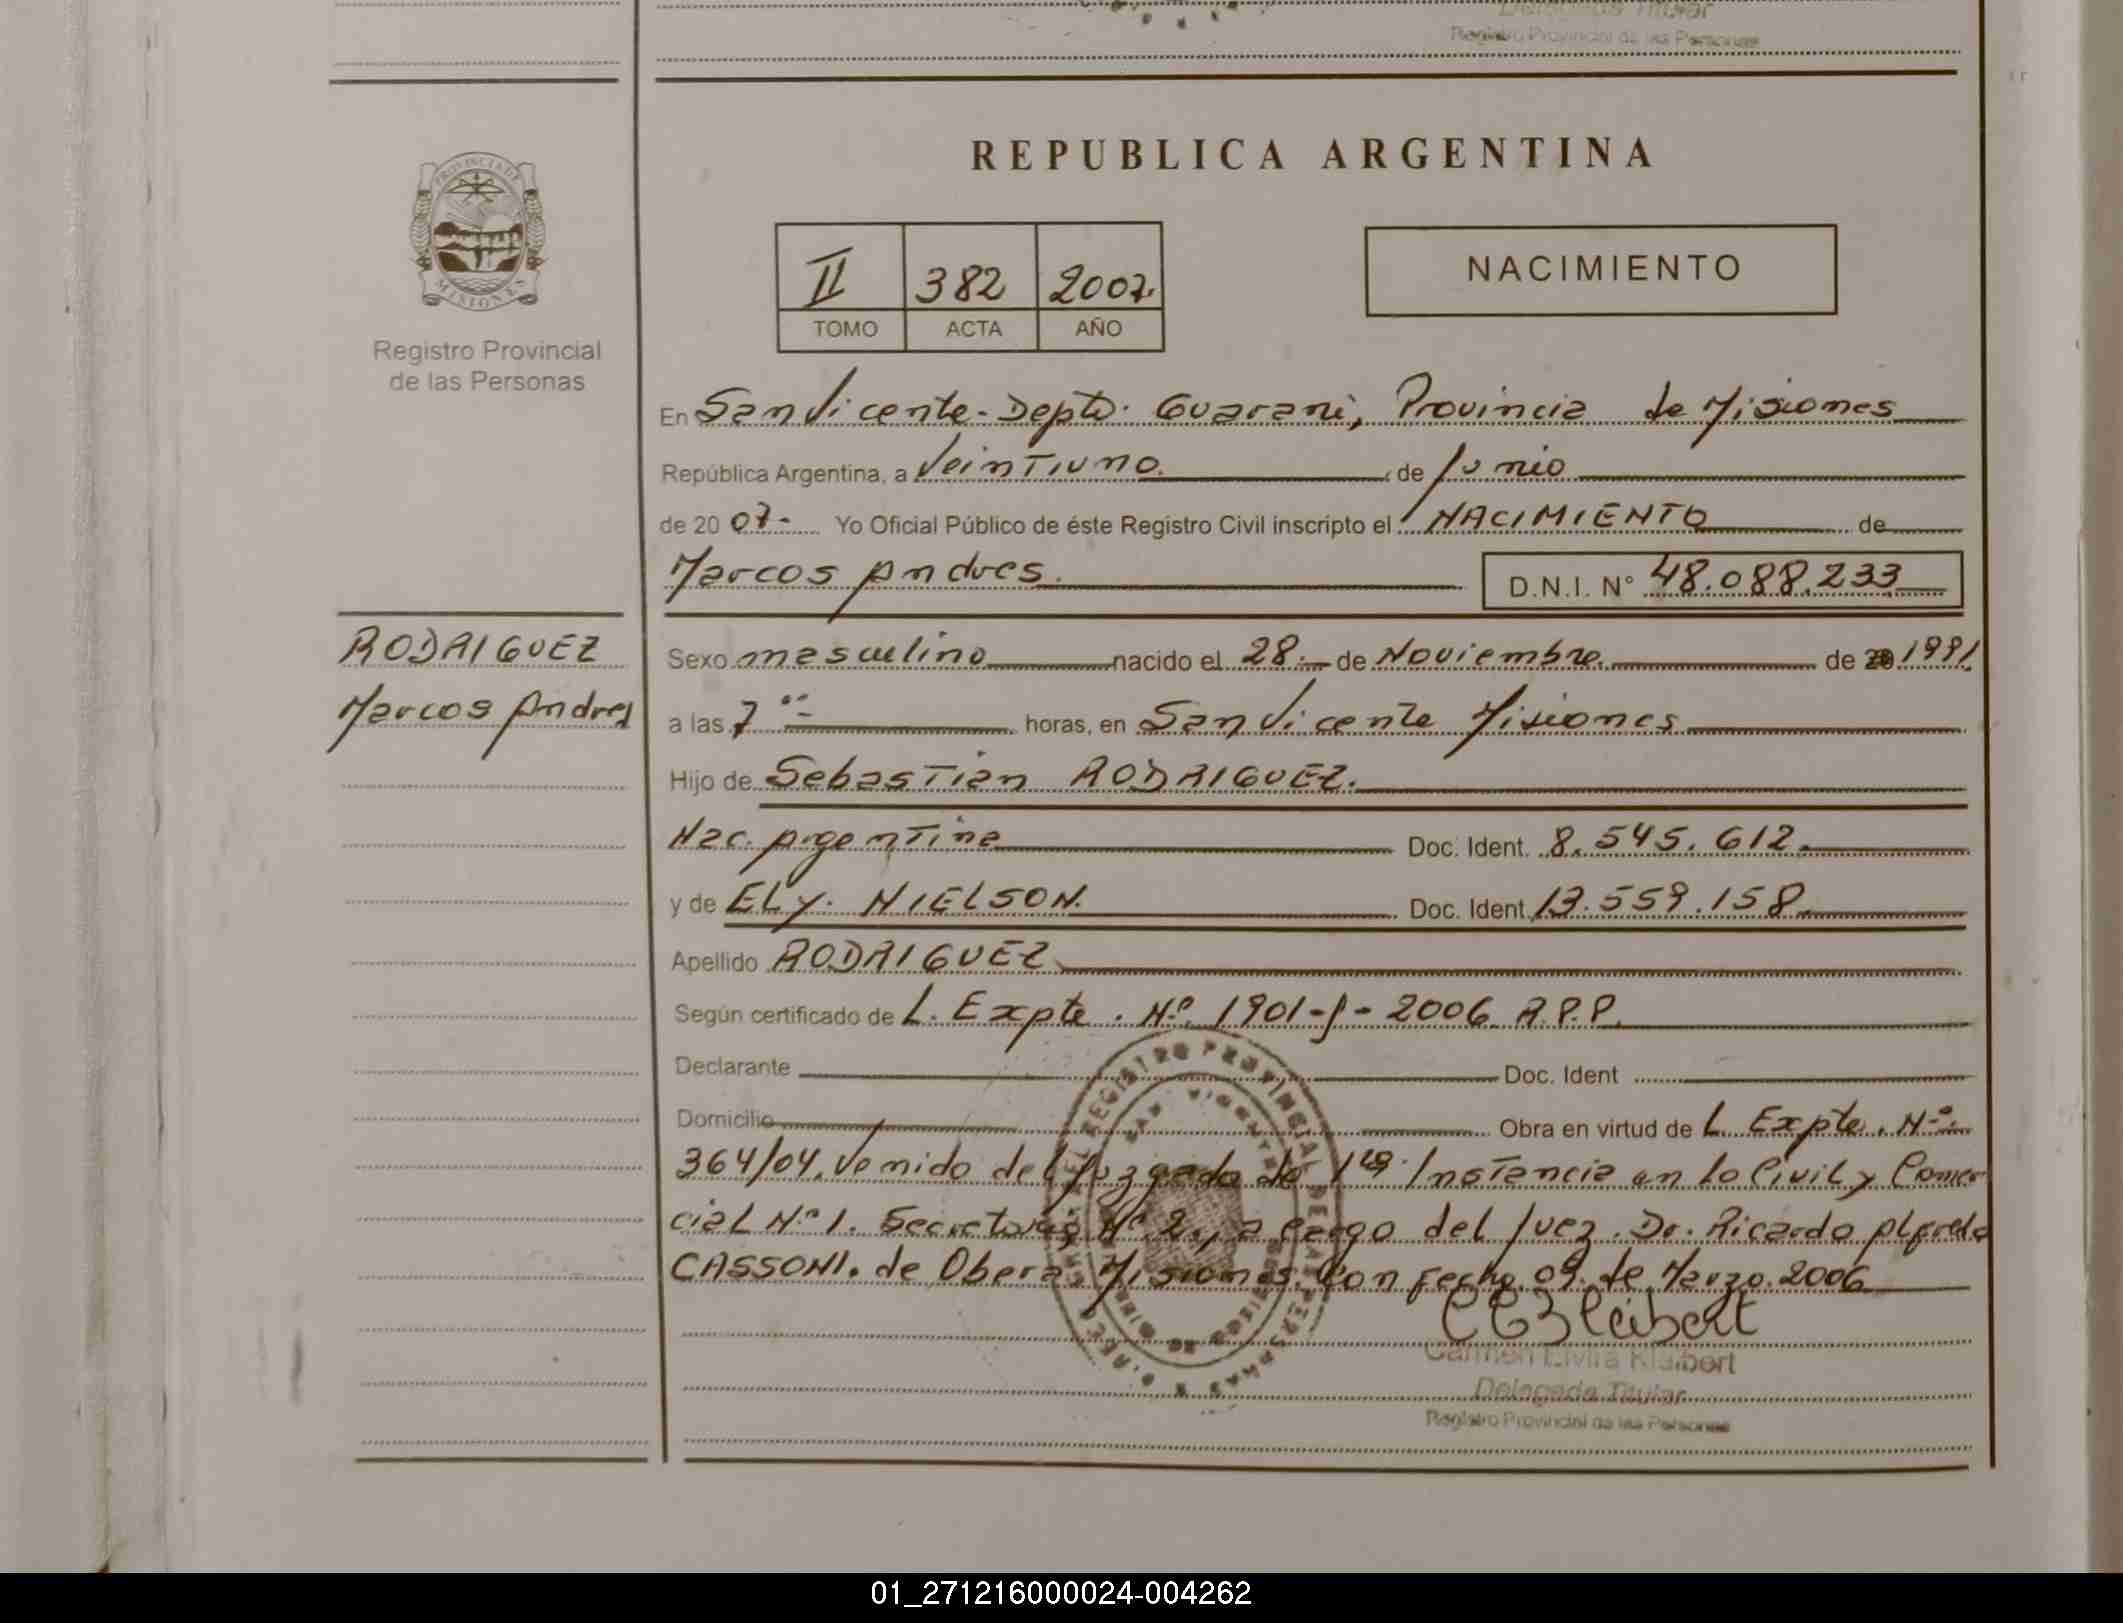 Delegada Titular
Registro Provincial de las Personas
PROVINCIA DE
MISIONES
Registro Provincial
de las Personas
REPUBLICA ARGENTINA
II 382 2007.
TOMO ACTA AÑO
NACIMIENTO
En San Vicente - Depto. Guarani, Provincia de Misiones
República Argentina, a Veintiuno. de Junio
de 20 07- Yo Oficial Público de éste Registro Civil inscripto el NACIMIENTO de
Marcos Andres. D.N.I. N° 48.088.233
RODRIGUEZ
Marcos Andres
Sexo masculino nacido el 28.- de Noviembre de 1991.
a las 7 oo horas, en San Vicente Misiones
Hijo de Sebastian RODRIGUEZ.
Nac. Argentina Doc. Ident. 8.545.612.
y de ELY. NIELSON. Doc. Ident. 13.559.158
Apellido RODRIGUEZ
Según certificado de L. Expte. Nº 1901-J-2006 R.P.P.
Declarante Doc. Ident
Domicilio Obra en virtud de L. Expte. Nº
364/04. Venido del Juzgado de 1ra. Instancia en lo Civil y Comer
cial Nº 1. Secretaria Nº 2., a cargo del Juez. Dr. Ricardo Alfredo
CASSONI. de Obera Misiones. Con Fecha. 09. de Marzo. 2006
REGISTRO PROVINCIAL DE LAS PERSONAS
SAN VICENTE
CEKleibert
Carmen Elvira Klaibert
Delegada Titular
Registro Provincial de las Personas
01_271216000024-004262